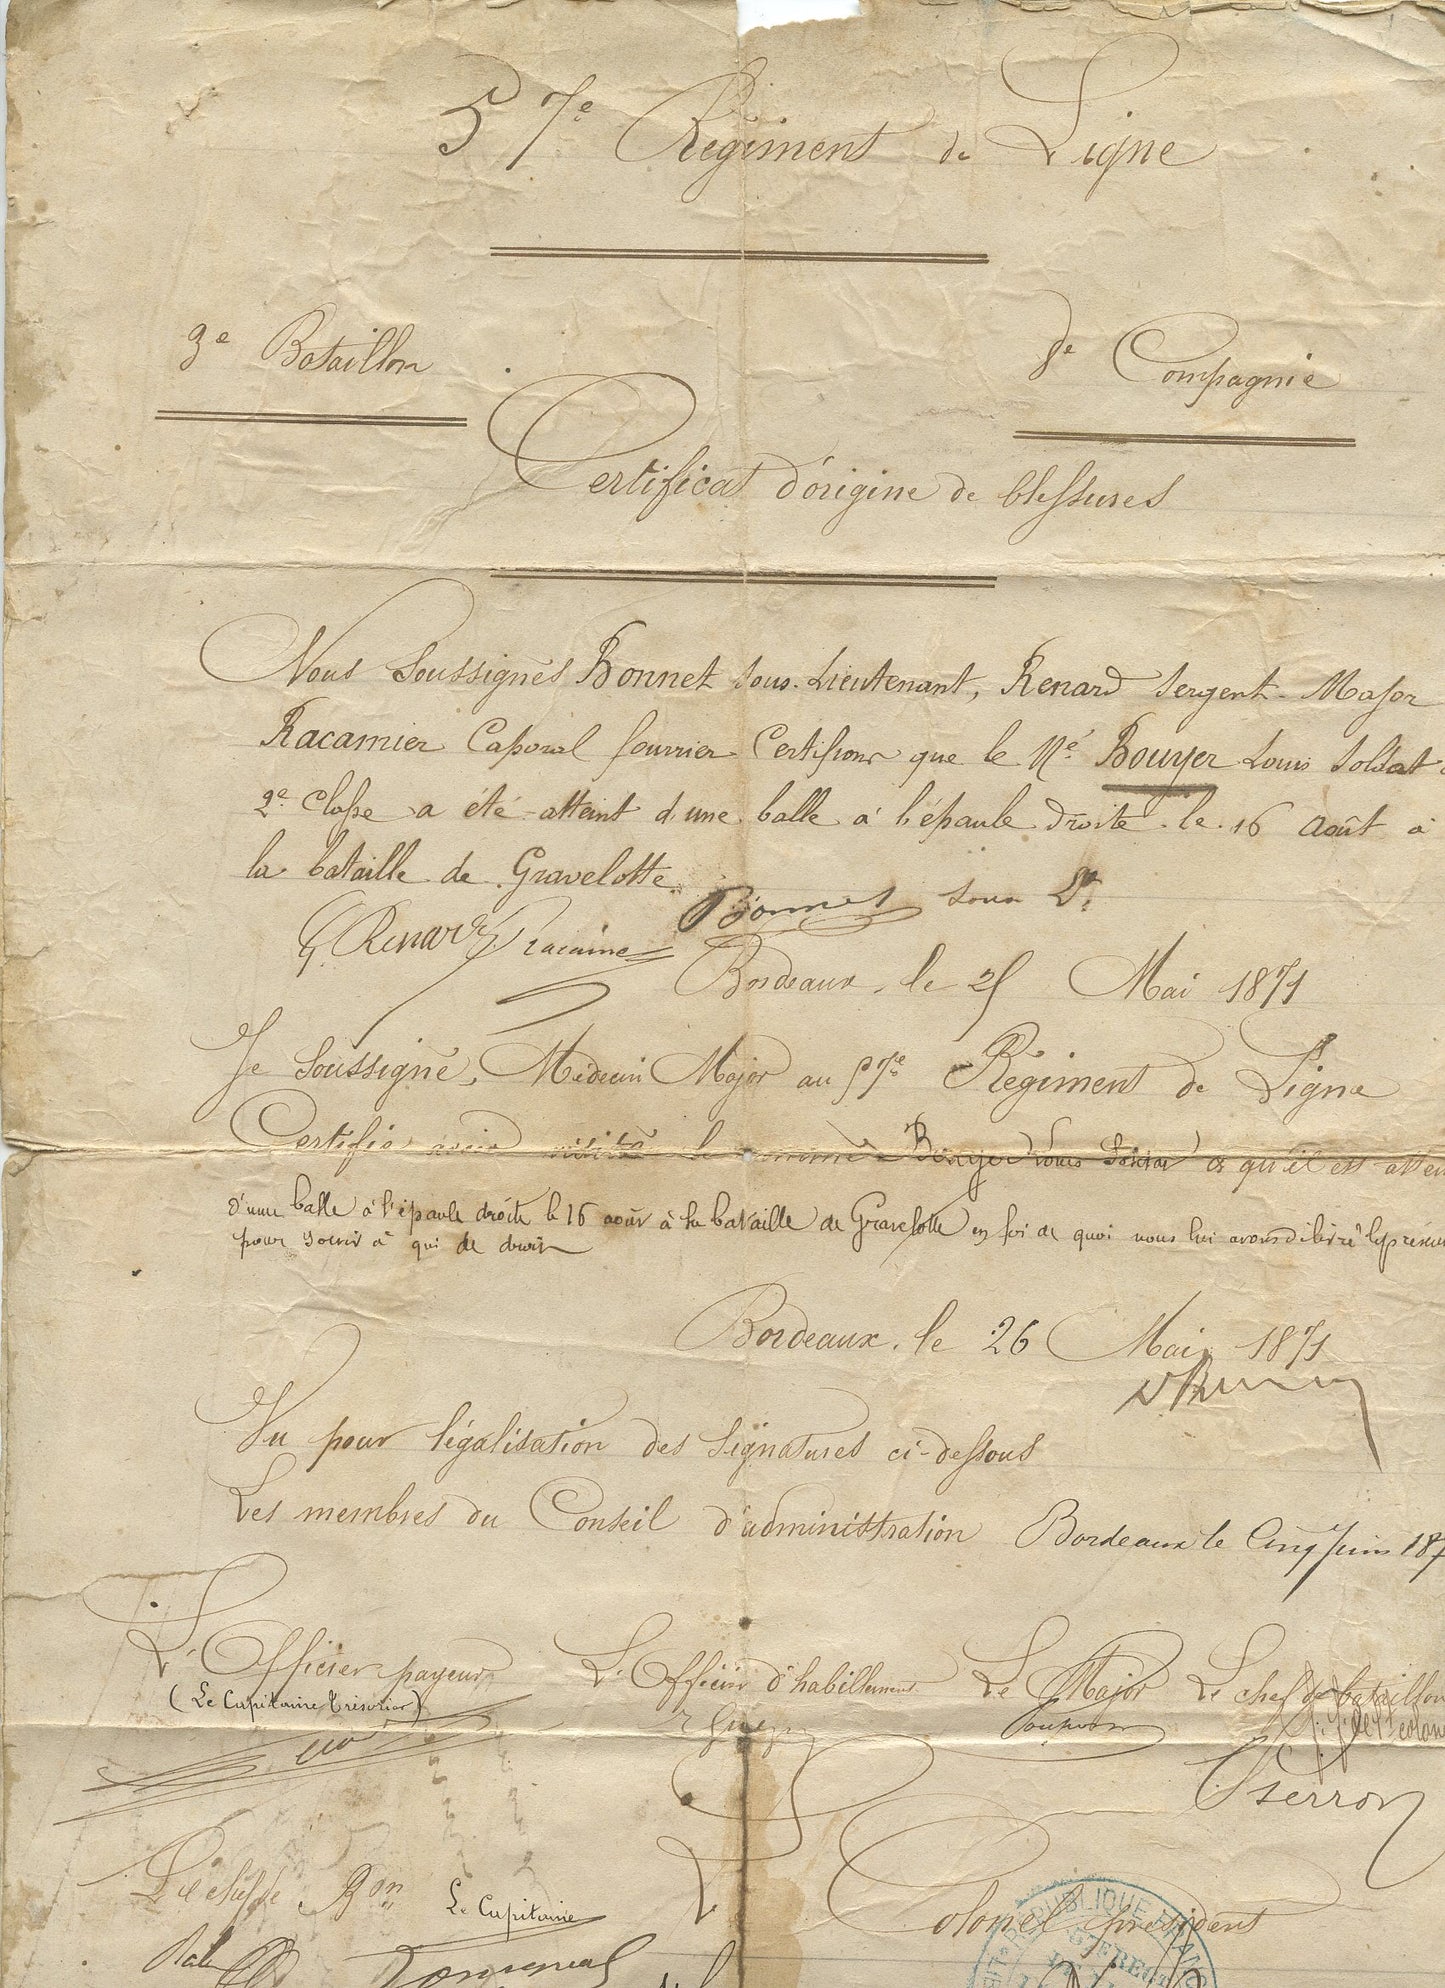 57e Régiment de Ligne
3e Bataillon
8e Compagnie
Certificat d'origine de blessures
Nous Soussignés Bonnet sous-Lieutenant, Renard Sergent-Major
Racamier Caporal fourrier Certifions que le Né Bouyer Louis Soldat
2e classe a été atteint d'une balle à l'épaule droite le 16 Août à
la bataille de Gravelotte.
Bonnet sous Lt
G. Renard Racamier
Bordeaux, le 25 Mai 1871
Je Soussigné, Médecin Major au 57e Régiment de Ligne
Certifie avoir visité le nommé Bouyer Louis Soldat qu'il est
d'une balle à l'épaule droite le 16 août à la bataille de Gravelotte en foi de quoi nous lui avons délivré le
pour servir à qui de droit
Bordeaux, le 26 Mai 1871
Vu pour légalisation des Signatures ci-dessous
Les membres du Conseil d'administration Bordeaux le Cinq Juin 187
L'Officier payeur
(Le Capitaine trésorier)
L'Officier d'habillement
Le Major
Le chef de bataillon
Perron
Le Capitaine
Le Colonel président
RÉPUBLIQUE FRANÇ